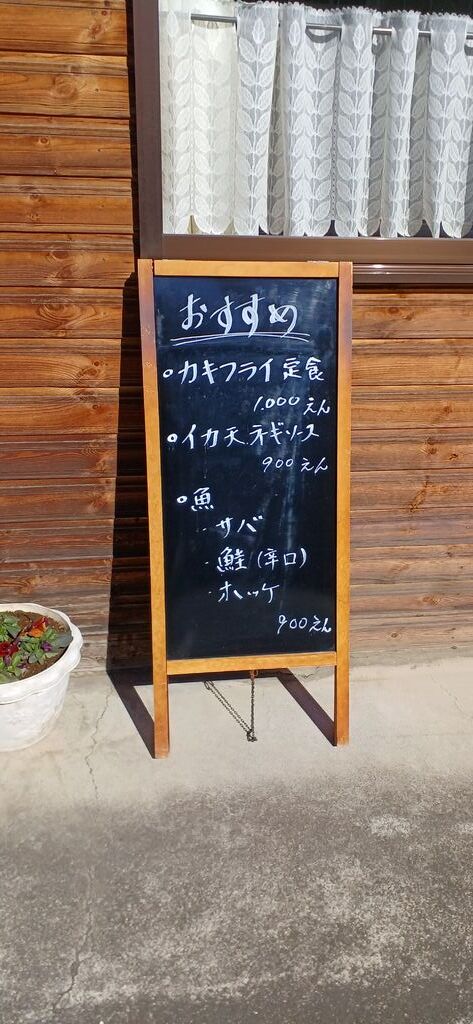 おすすめ
カキフライ定食
1,000えん
イカ天ネギソース
900えん
魚
・サバ
・鮭(辛口)
・ホッケ
900えん